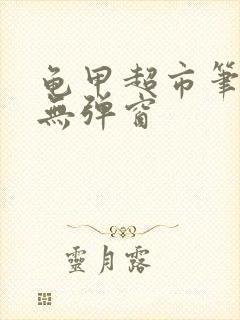 龟甲超市筆
無弹窗
靈月露